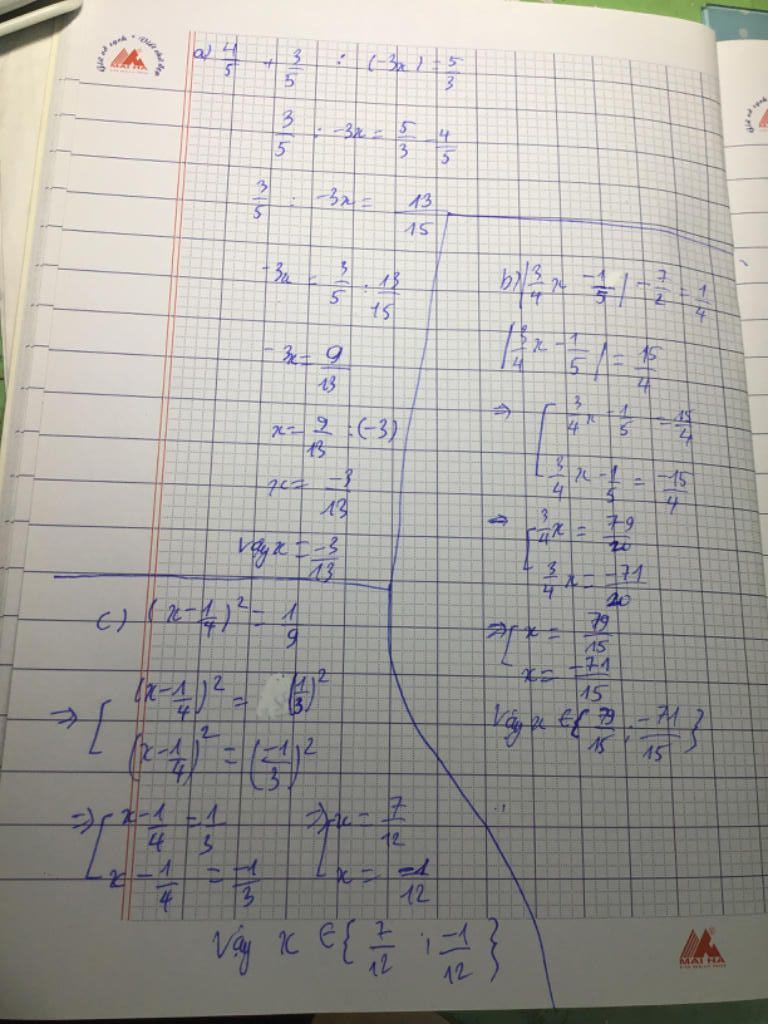 MAI HA
a) 4/5 + 3/5 : (-3x) = 5/3
3/5 : -3x = 5/3 - 4/5
3/5 : -3x = 13/15
-3x = 3/5 : 13/15
-3x = 9/13
x = 9/13 : (-3)
x = -3/13
Vậy x = -3/13
b) |3/4 x - 1/5| - 7/2 = 1/4
|3/4 x - 1/5| = 15/4
⇒ [ 3/4 x - 1/5 = 15/4
3/4 x - 1/5 = -15/4
⇒ [ 3/4 x = 79/20
3/4 x = -71/20
⇒ [ x = 79/15
x = -71/15
Vậy x ∈ { 79/15 ; -71/15 }
c) (x - 1/4)² = 1/9
⇒ [ (x - 1/4)² = (1/3)²
(x - 1/4)² = (-1/3)²
⇒ [ x - 1/4 = 1/3 ⇒ [ x = 7/12
x - 1/4 = -1/3 x = -1/12
Vậy x ∈ { 7/12 ; -1/12 }
MAI HA